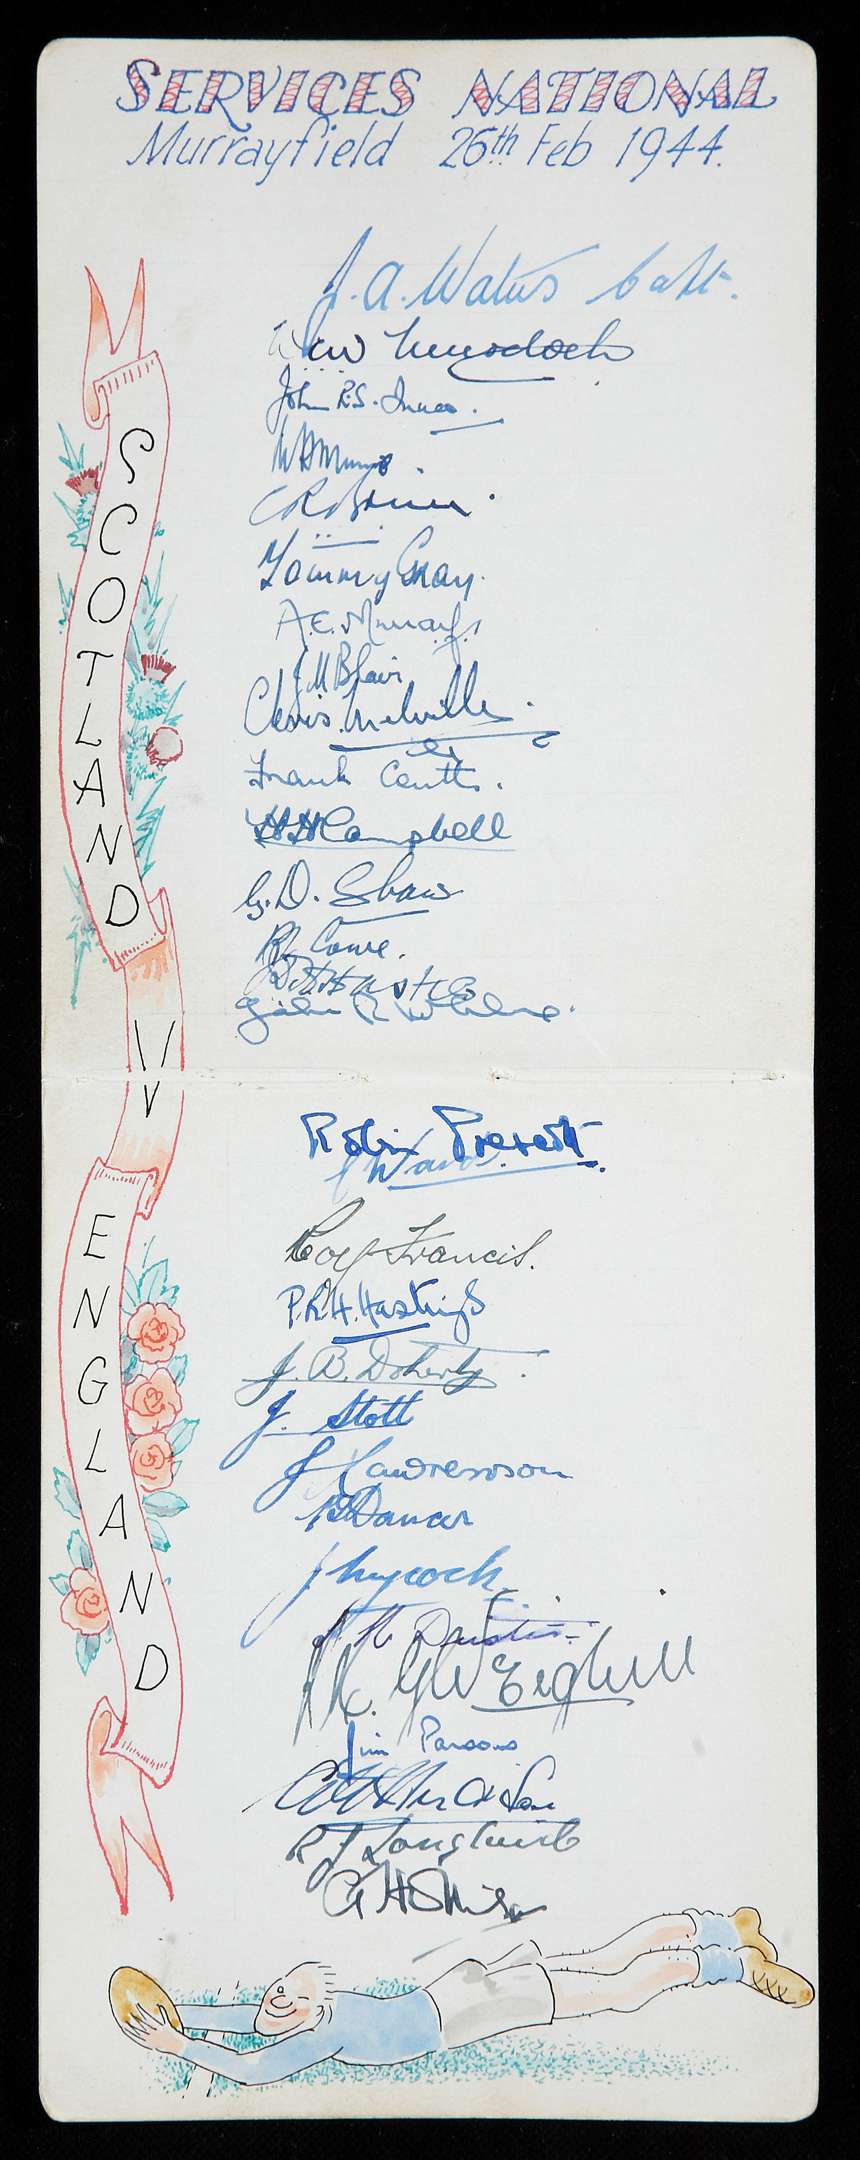 SERVICES NATIONAL
Murrayfield 26th Feb 1944.
J. A. Waters Capt.
W C W Murdoch
John R.S. Innes.
W H Munro.
C R Bruce.
Tommy Gray.
A. E. Murray.
J M Blair
Chris. Melville.
Frank Coutts.
H H Campbell
G. D. Shaw
R Cowe.
SCOTLAND
V
V
Robin Prescott
E Ward.
Roy Francis.
P.R.H. Hastings
J. B. Doherty.
J. Stott
J Lawrenson
Dancer
J Mycock
R. G. H. Weighill
Jim Parsons
R J Longland
ENGLAND